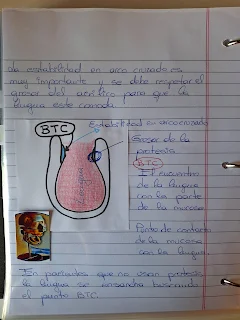 La estabilidad en arco cruzado es
muy importante y se debe respetar el
grosor del acrílico para que la
lengua esté comoda.
BTC
Estabilidad en arco cruzado
Grosor de la
protesis
BTC
El encuentro
de la lengua
con la parte
de la mucosa
Lengua
Punto de contacto
de la mucosa
con la lengua.
En pacientes que no usan protesis
la lengua se ensancha buscando
el punto BTC.